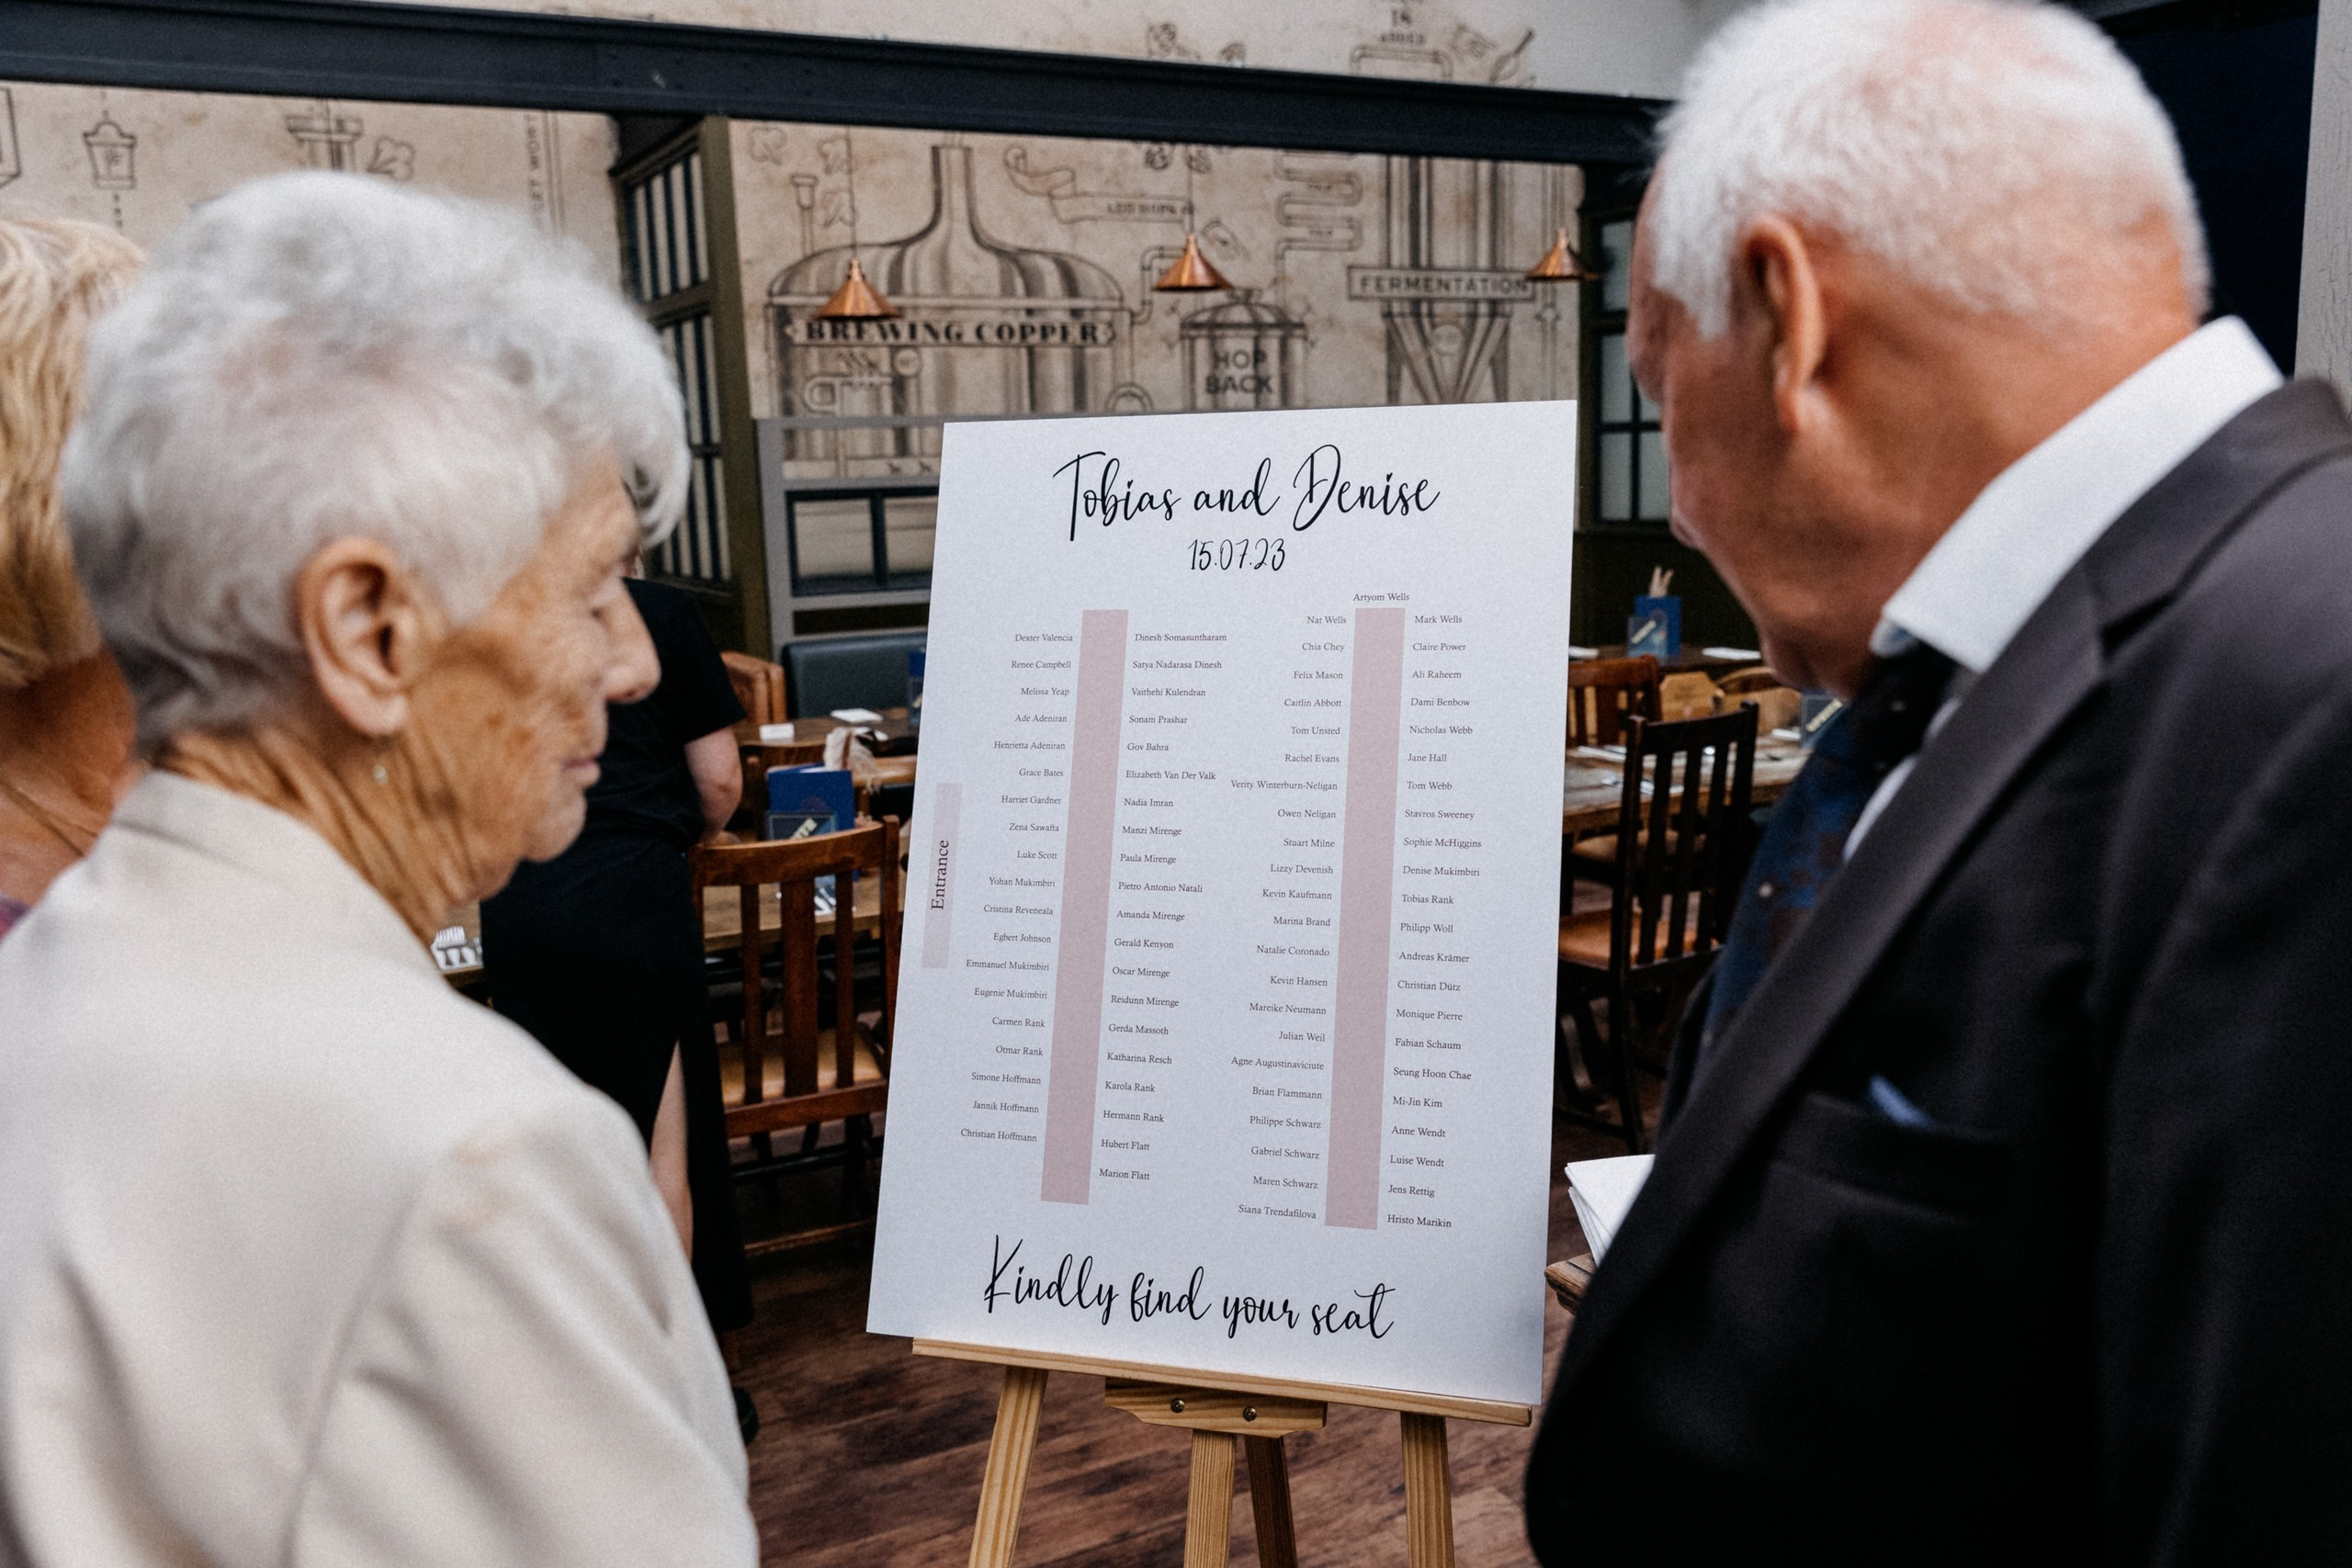 IS
ADDED
LET WORT
BREWING COPPER
HOP
BACK
FERMENTATION
Tobias and Denise
15.07.23
Entrance
Dexter Valencia
Renee Campbell
Melissa Yeap
Ade Adeniran
Henrietta Adeniran
Grace Bates
Harriet Gardner
Zena Sawafta
Luke Scott
Yohan Mukimbiri
Cristina Reveneala
Egbert Johnson
Emmanuel Mukimbiri
Eugenie Mukimbiri
Carmen Rank
Otmar Rank
Simone Hoffmann
Jannik Hoffmann
Christian Hoffmann
Dinesh Somasuntharam
Satya Nadarasa Dinesh
Vaithehi Kulendran
Sonam Prashar
Gov Bahra
Elizabeth Van Der Valk
Nadia Imran
Manzi Mirenge
Paula Mirenge
Pietro Antonio Natali
Amanda Mirenge
Gerald Kenyon
Oscar Mirenge
Reidunn Mirenge
Gerda Massoth
Katharina Resch
Karola Rank
Hermann Rank
Hubert Flatt
Marion Flatt
Artyom Wells
Nat Wells
Chia Chey
Felix Mason
Caitlin Abbott
Tom Unsted
Rachel Evans
Verity Winterburn-Neligan
Owen Neligan
Stuart Milne
Lizzy Devenish
Kevin Kaufmann
Marina Brand
Natalie Coronado
Kevin Hansen
Mareike Neumann
Julian Weil
Agne Augustinaviciute
Brian Flammann
Philippe Schwarz
Gabriel Schwarz
Maren Schwarz
Siana Trendafilova
Mark Wells
Claire Power
Ali Raheem
Dami Benbow
Nicholas Webb
Jane Hall
Tom Webb
Stavros Sweeney
Sophie McHiggins
Denise Mukimbiri
Tobias Rank
Philipp Woll
Andreas Krämer
Christian Dütz
Monique Pierre
Fabian Schaum
Seung Hoon Chae
Mi-Jin Kim
Anne Wendt
Luise Wendt
Jens Rettig
Hristo Marikin
Kindly find your seat